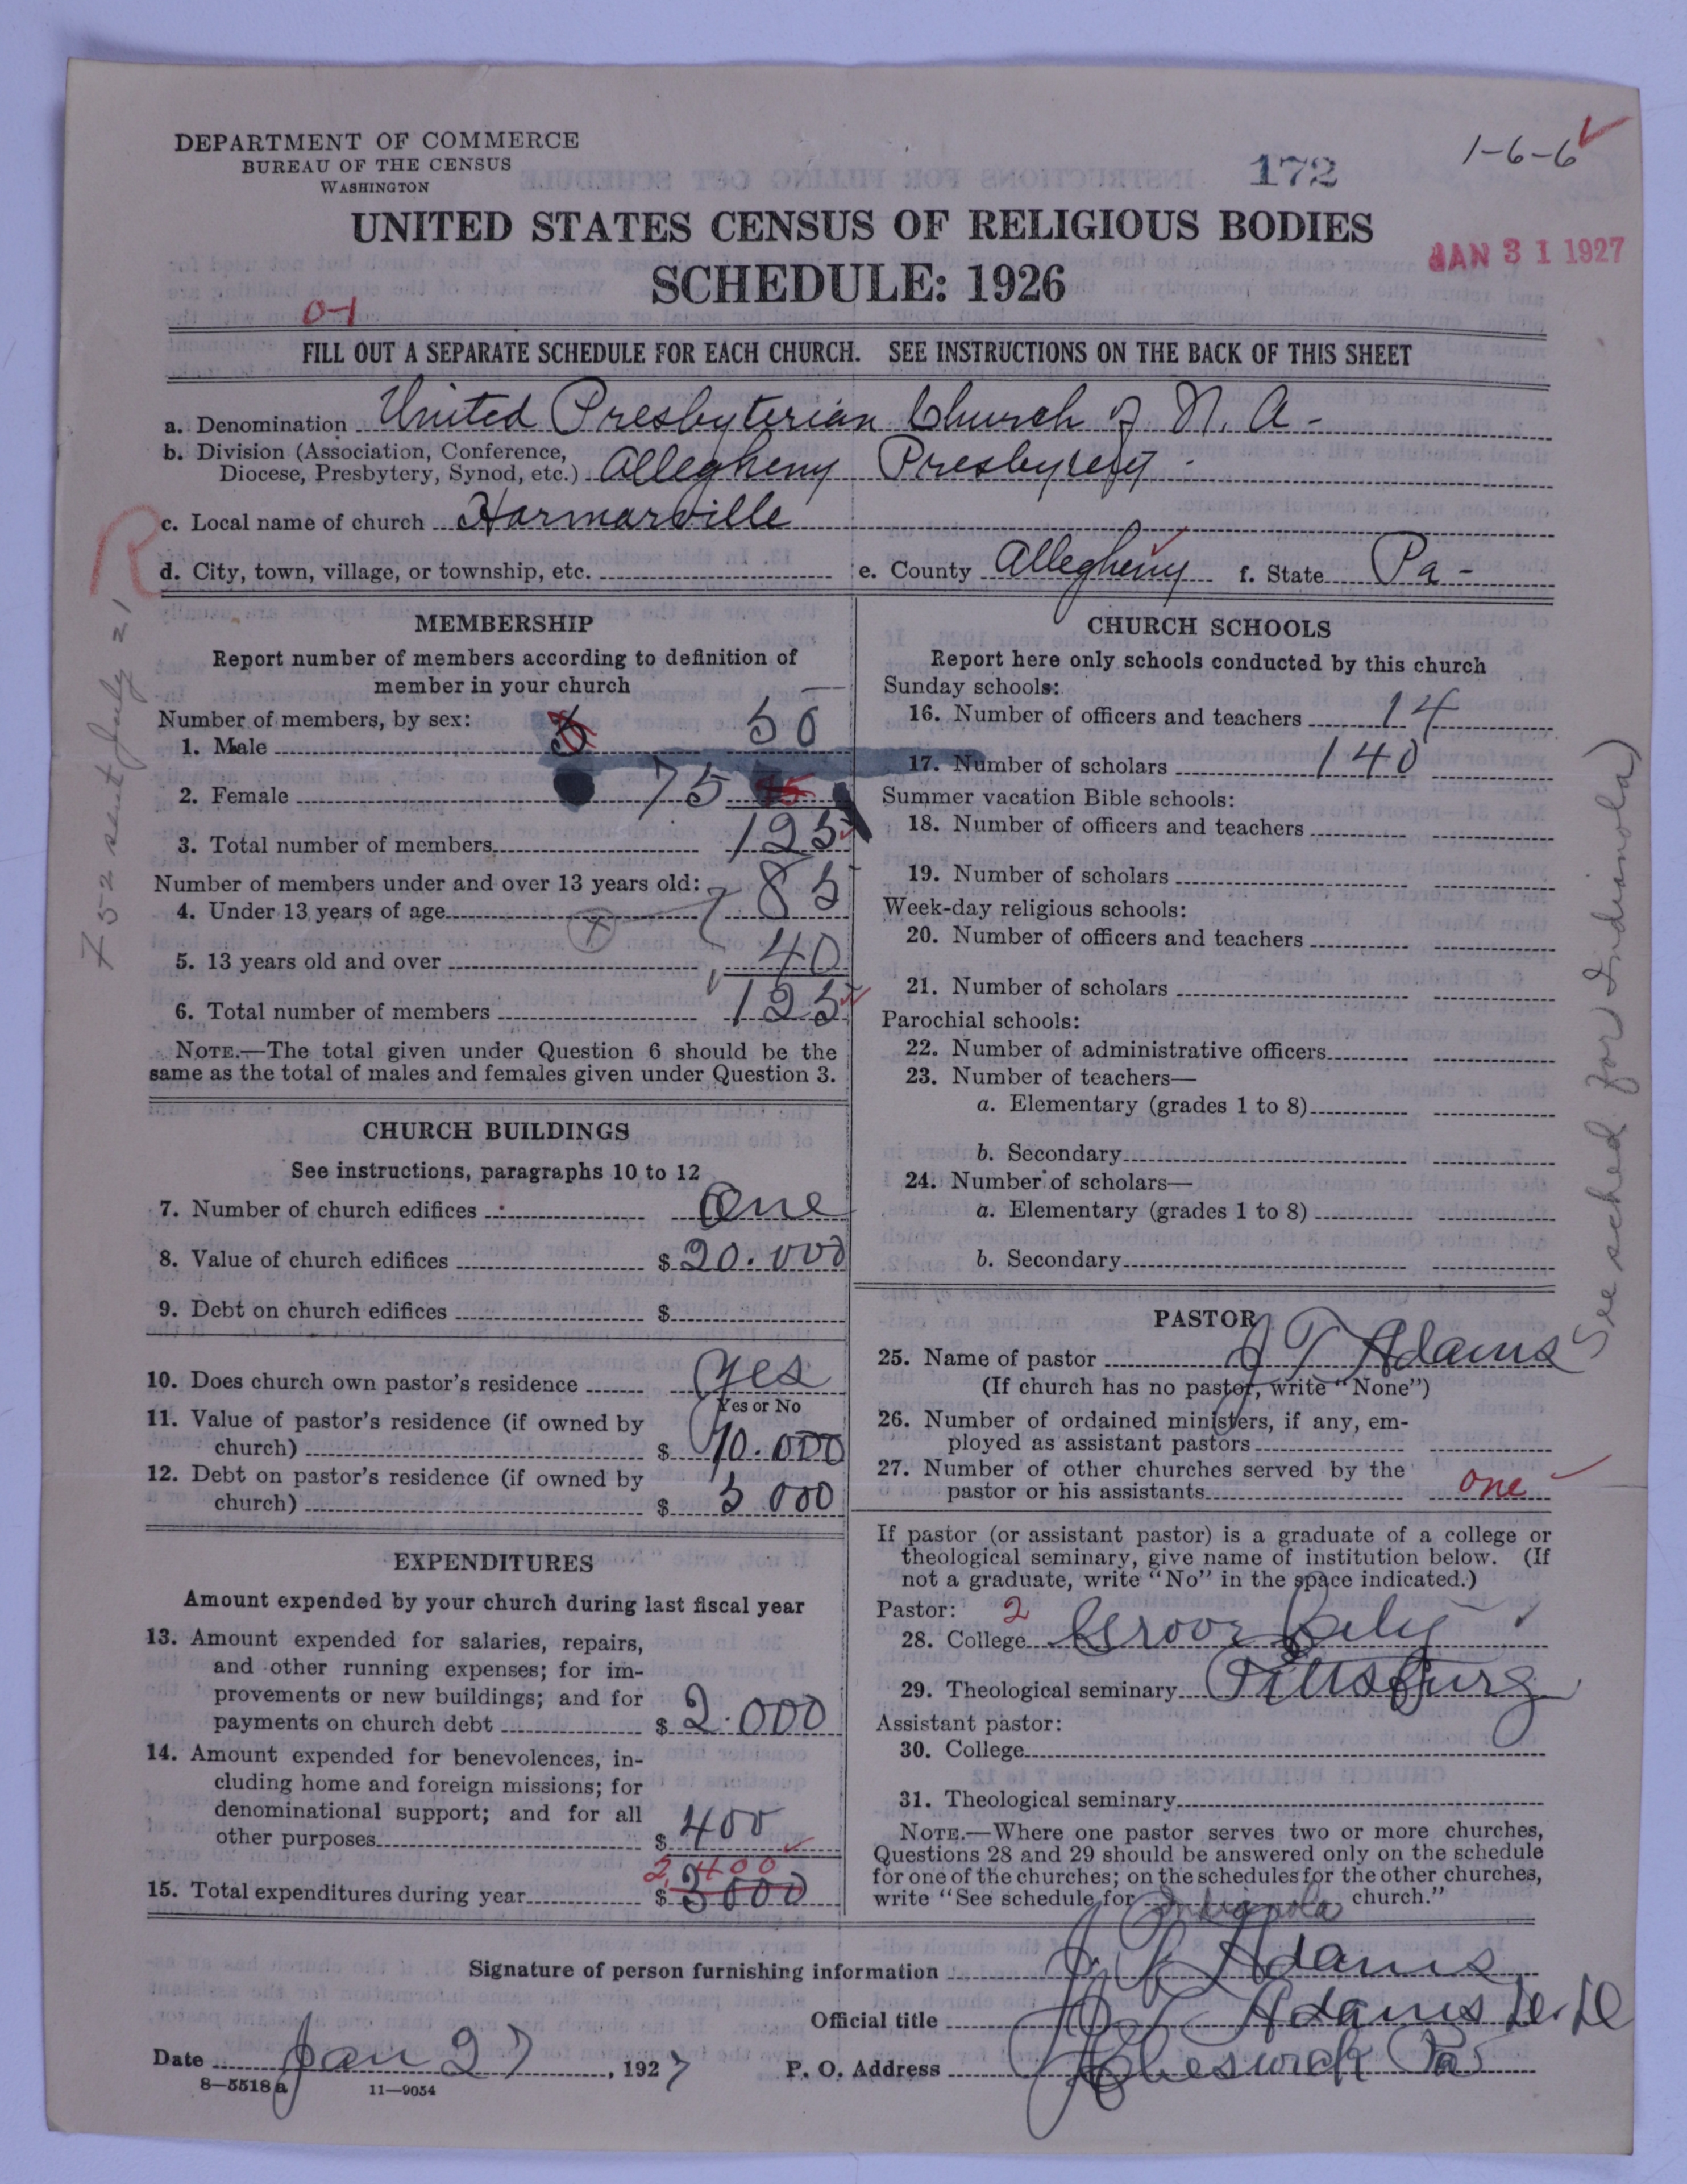 DEPARTMENT OF COMMERCE
BUREAU OF THE CENSUS
WASHINGTON
172
1-6-6
UNITED STATES CENSUS OF RELIGIOUS BODIES
SCHEDULE: 1926
JAN 31 1927
0-1
FILL OUT A SEPARATE SCHEDULE FOR EACH CHURCH. SEE INSTRUCTIONS ON THE BACK OF THIS SHEET
a. Denomination United Presbyterian Church of N. A -
b. Division (Association, Conference,
Diocese, Presbytery, Synod, etc.) Allegheny Presbytery -
c. Local name of church Harmarville
d. City, town, village, or township, etc. e. County Allegheny f. State Pa -
R
MEMBERSHIP
Report number of members according to definition of
member in your church
Number of members, by sex:
1. Male 50
2. Female 75
3. Total number of members 125
Number of members under and over 13 years old:
4. Under 13 years of age 85
5. 13 years old and over 40
6. Total number of members 125
NOTE.—The total given under Question 6 should be the
same as the total of males and females given under Question 3.
CHURCH BUILDINGS
See instructions, paragraphs 10 to 12
7. Number of church edifices One
8. Value of church edifices $ 20.000
9. Debt on church edifices $
10. Does church own pastor's residence yes
Yes or No
11. Value of pastor's residence (if owned by
church) $ 10.000
12. Debt on pastor's residence (if owned by
church) $ 5 000
EXPENDITURES
Amount expended by your church during last fiscal year
13. Amount expended for salaries, repairs,
and other running expenses; for im-
provements or new buildings; and for
payments on church debt $ 2.000
14. Amount expended for benevolences, in-
cluding home and foreign missions; for
denominational support; and for all
other purposes $ 400
2,400
15. Total expenditures during year $ 3000
CHURCH SCHOOLS
Report here only schools conducted by this church
Sunday schools:
16. Number of officers and teachers 14
17. Number of scholars 140
Summer vacation Bible schools:
18. Number of officers and teachers
19. Number of scholars
Week-day religious schools:
20. Number of officers and teachers
21. Number of scholars
Parochial schools:
22. Number of administrative officers
23. Number of teachers—
a. Elementary (grades 1 to 8)
b. Secondary
24. Number of scholars—
a. Elementary (grades 1 to 8)
b. Secondary
PASTOR
25. Name of pastor J T Adams
(If church has no pastor, write "None")
26. Number of ordained ministers, if any, em-
ployed as assistant pastors
27. Number of other churches served by the
pastor or his assistants one
If pastor (or assistant pastor) is a graduate of a college or
theological seminary, give name of institution below. (If
not a graduate, write "No" in the space indicated.)
Pastor: 2
28. College Grove City
29. Theological seminary Pittsburg
Assistant pastor:
30. College
31. Theological seminary
NOTE.—Where one pastor serves two or more churches,
Questions 28 and 29 should be answered only on the schedule
for one of the churches; on the schedules for the other churches,
write "See schedule for Indianola church."
See sched for Indianola)
Signature of person furnishing information J. T. Adams
Official title J T Adams D. D
Date Jan 27, 1927 P. O. Address Cheswick Pa
8—5518 a 11—9054